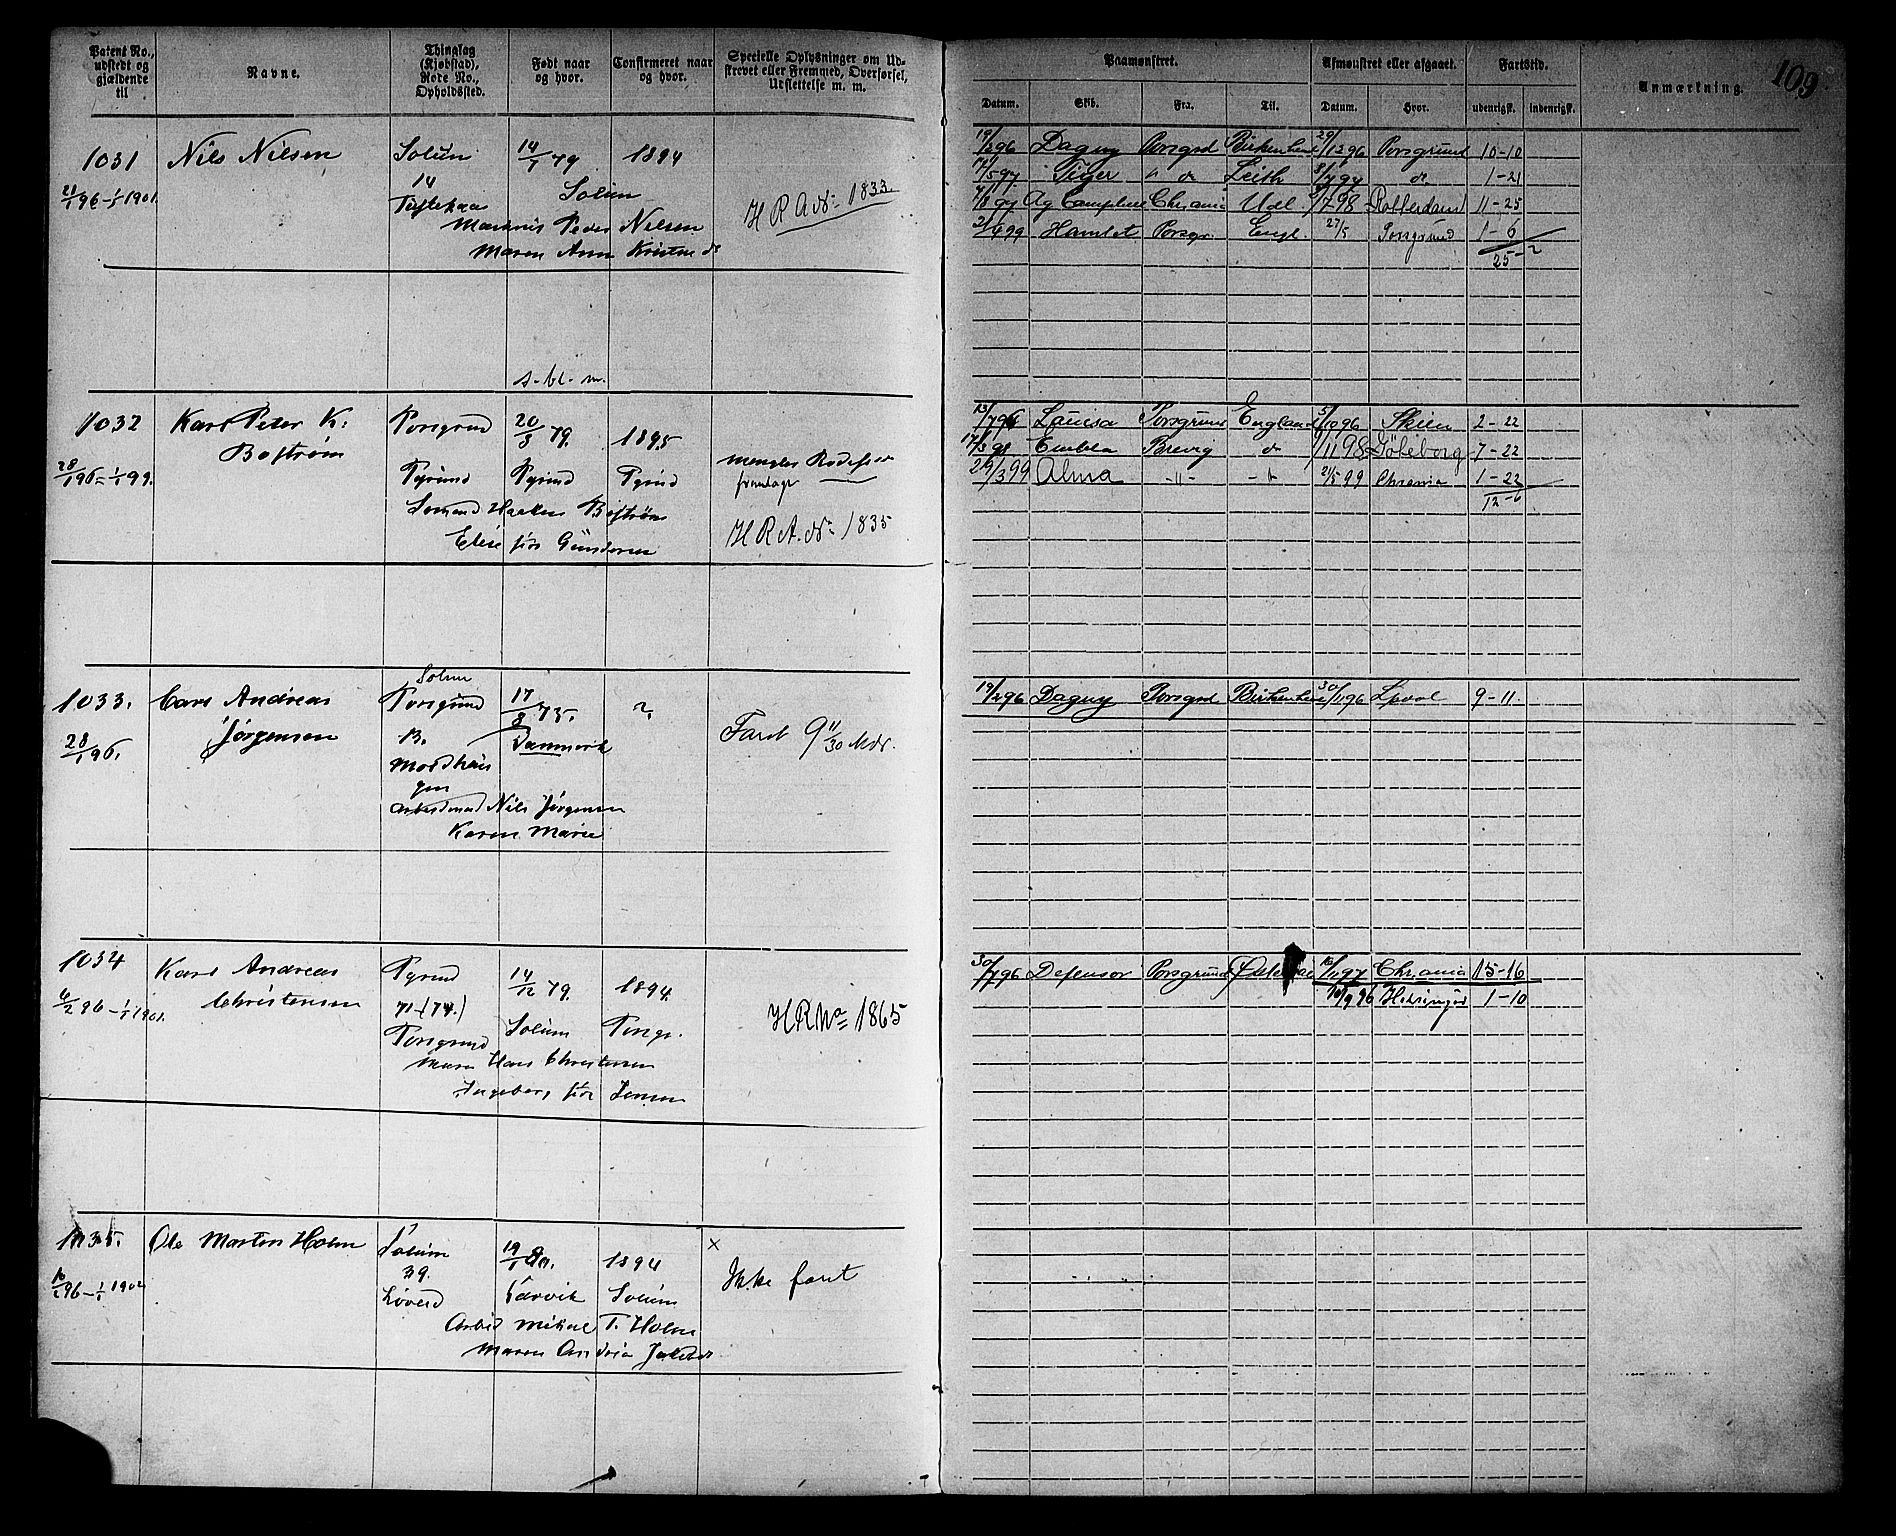 109
Patent No., udstedt og gjældende til
Navne.
Thinglag (Kjøbstad), Rode No., Opholdssted.
Født naar og hvor.
Confirmeret naar og hvor.
Specielle Oplysninger om Udskrevet eller Fremmed, Overførsel, Udslettelse m. m.
Paamønstret.
Afmønstret eller afgaaet.
Fartstid.
Anmærkning.
Datum. Skib. Fra. Til. Datum. Hvor. udenrigsk. indenrigsk.
1031 Nils Nilsen Solum 14/7 79 1894
21/1 96 - 1/1 1901 14 Solum
H R A No 1833
Markus Peder Nilsen
Maren Anne Kristine
19/2 96 Dagny Porsgrd Birkenhead 29/12 96 Porsgrund 10-10
Tiger " do Leith 8/7 97 do 1-21
Chrania Udl 98 Rotterdam 11-25
99 Hamlet Porsgr. Engl. 27/5 Porsgrund 1-6
25-2
s. bl. m.
1032 Karl Peter K. Porsgrund 20/3 79. 1895
Bostrøm
28/1 96 - 1/1 99. Pgrund Pgrund Pgrund
H R A. No 1835
Bostrøm
Elise før Gundersen
13/7 96 Louisa Porsgrund England 5/10 96 Skien 2-22
17/3 98 Embla Brevig do 9/11 98 Göteborg 7-22
29/3 99 Alma -"- 21/5 99 Chrania 1-22
12-6
Solum
1033. Carl Andreas Porsgrund 17/8 75. ?
Jørgensen
28/1 96. B. Danmark
Fart 9 11/30 Mdr.
Arbeidsmand Nils Jørgensen
Karen Marie
19/2 96 Dagny Porsgrd Birkenhead 30/11 96 Lpool 9-11.
1034 Karl Andreas Pgrund 14/12 79. 1894.
Christensen
6/2 96 - 1/1 1901. 71 (74.)
Porsgrund Solum Porsgr.
H R No 1865
Hans Christensen
Ingeborg før Jensen
30/7 96 Defensor Porsgrund 16/11 97 Chrania 15-16
10/9 96 Helsingør 1-10
1035. Ole Martin Holm Solum 19/1 80. 1894 x
39.
16/2 96 - 1/1 1902 Løverd Larvik Solum
Ikke faret
Arbeid Mikal T. Holm
Maren Andrea